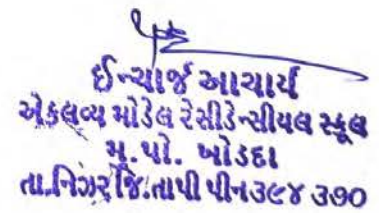 ઈન્ચાર્જ આચાર્ય
એકલવ્ય મોડેલ રેસીડેન્સીયલ સ્કૂલ
મુ.પો. ખોડદા
તા.નિઝર જિ.તાપી પીન ૩૯૪ ૩૭૦